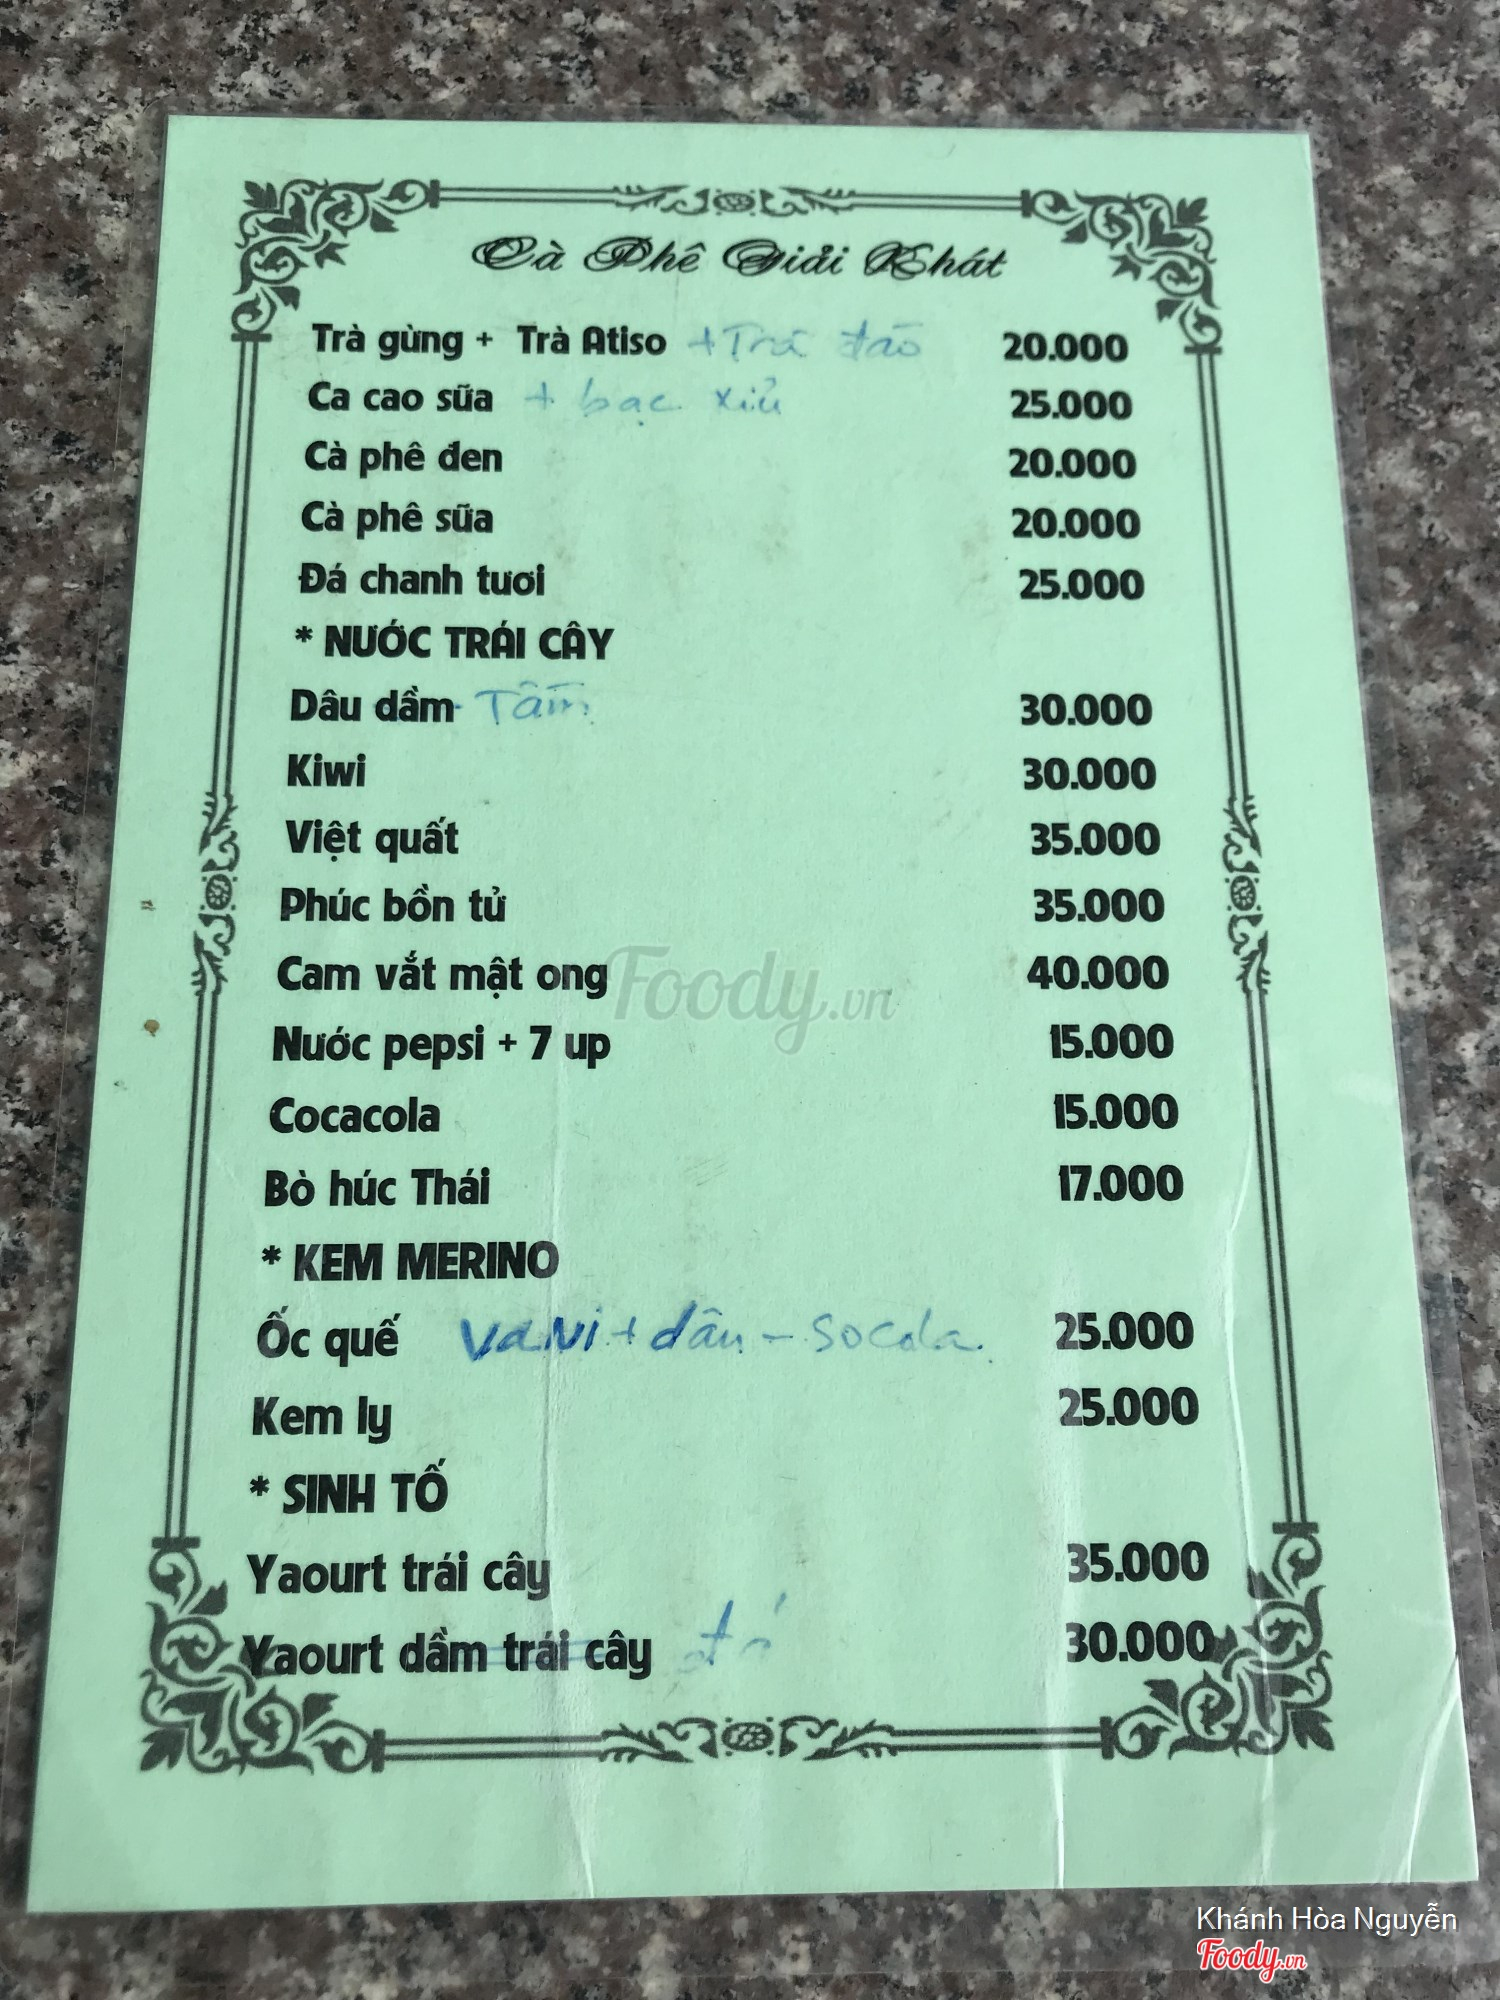 Cà Phê Giải Khát
Trà gừng + Trà Atiso + Trà đào 20.000
Ca cao sữa + bạc xỉu 25.000
Cà phê đen 20.000
Cà phê sữa 20.000
Đá chanh tươi 25.000
* NƯỚC TRÁI CÂY
Dâu dầm - Tầm 30.000
Kiwi 30.000
Việt quất 35.000
Phúc bồn tử 35.000
Cam vắt mật ong 40.000
Foody.vn
Nước pepsi + 7 up 15.000
Cocacola 15.000
Bò húc Thái 17.000
* KEM MERINO
Ốc quế VaNi + dâu - Socola 25.000
Kem ly 25.000
* SINH TỐ
Yaourt trái cây 35.000
Yaourt dầm trái cây đá 30.000
Khánh Hòa Nguyễn
Foody.vn